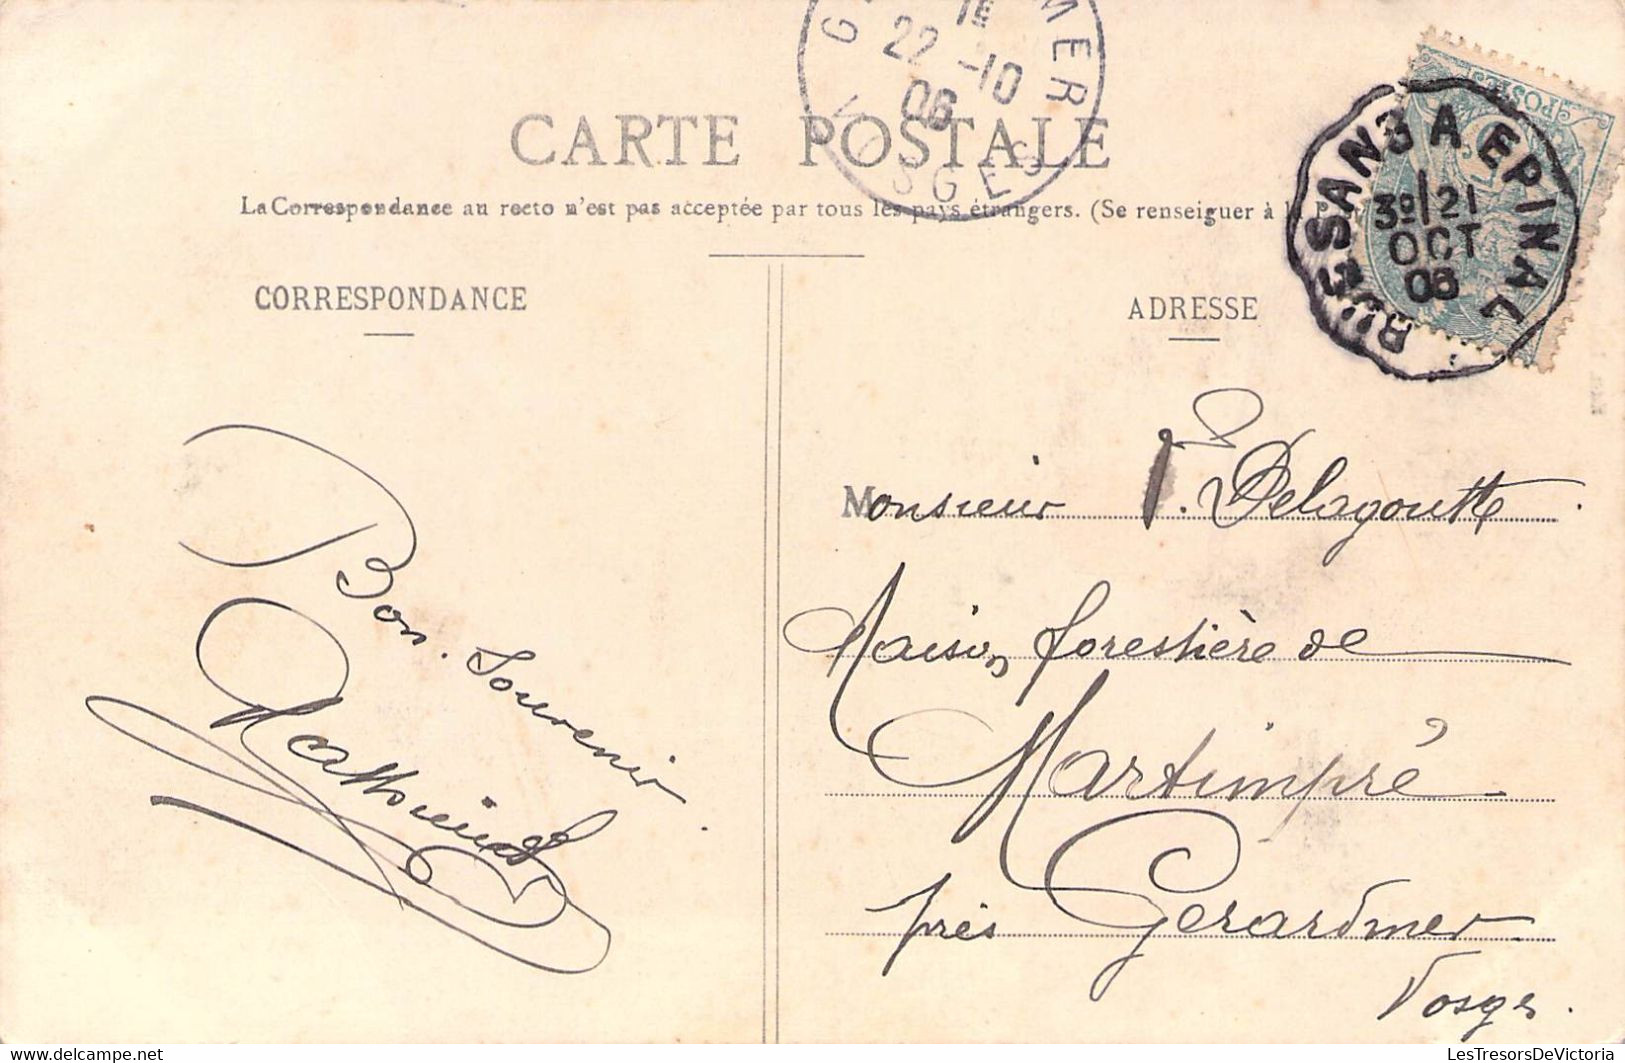 CARTE POSTALE
La Correspondance au recto n'est pas acceptée par tous les pays étrangers. (Se renseigner à la
CORRESPONDANCE
ADRESSE
22 -10
06
VOSGES
A EPINAL
3º/21
OCT
06
POSTES
Bon Souvenir
Monsieur F. Delagoutte
Maison forestière de
Martimpré
près Gerardmer
Vosges.
LesTresorsDeVictoria